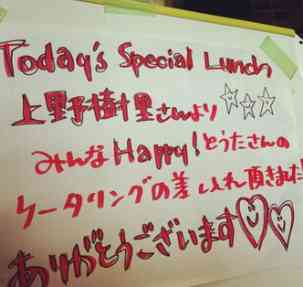 Today's Special Lunch
上野樹里さんより
みんなHappy!とうたさんの
ケータリングの差し入れ頂きました
ありがとうございます